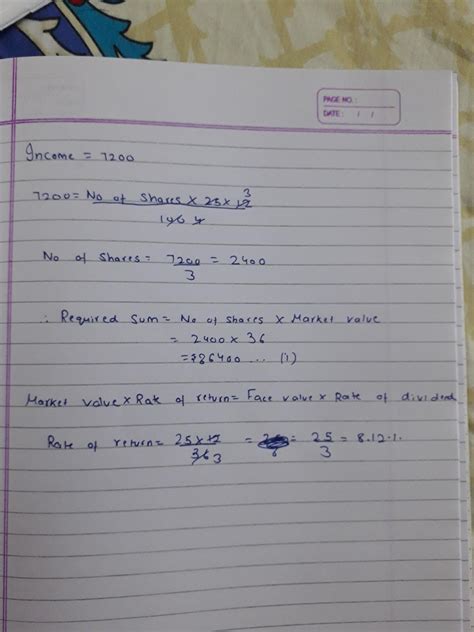 PAGE NO.:
DATE: / /
Income = 7200
7200 = No of shares × 25 × 12 3
100 4
No of shares = 7200 = 2400
3
∴ Required sum = No of shares × Market value
= 2400 × 36
= ₹86400 ... (1)
Market value × Rate of return = Face value × Rate of dividend
Rate of return = 25 × 12 = = 25 = 8.12.1.
36 3 6 3